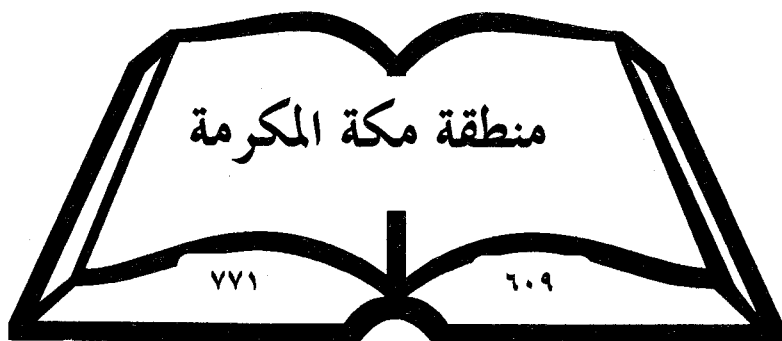 منطقة مكة المكرمة
٦٠٩ ٧٧١